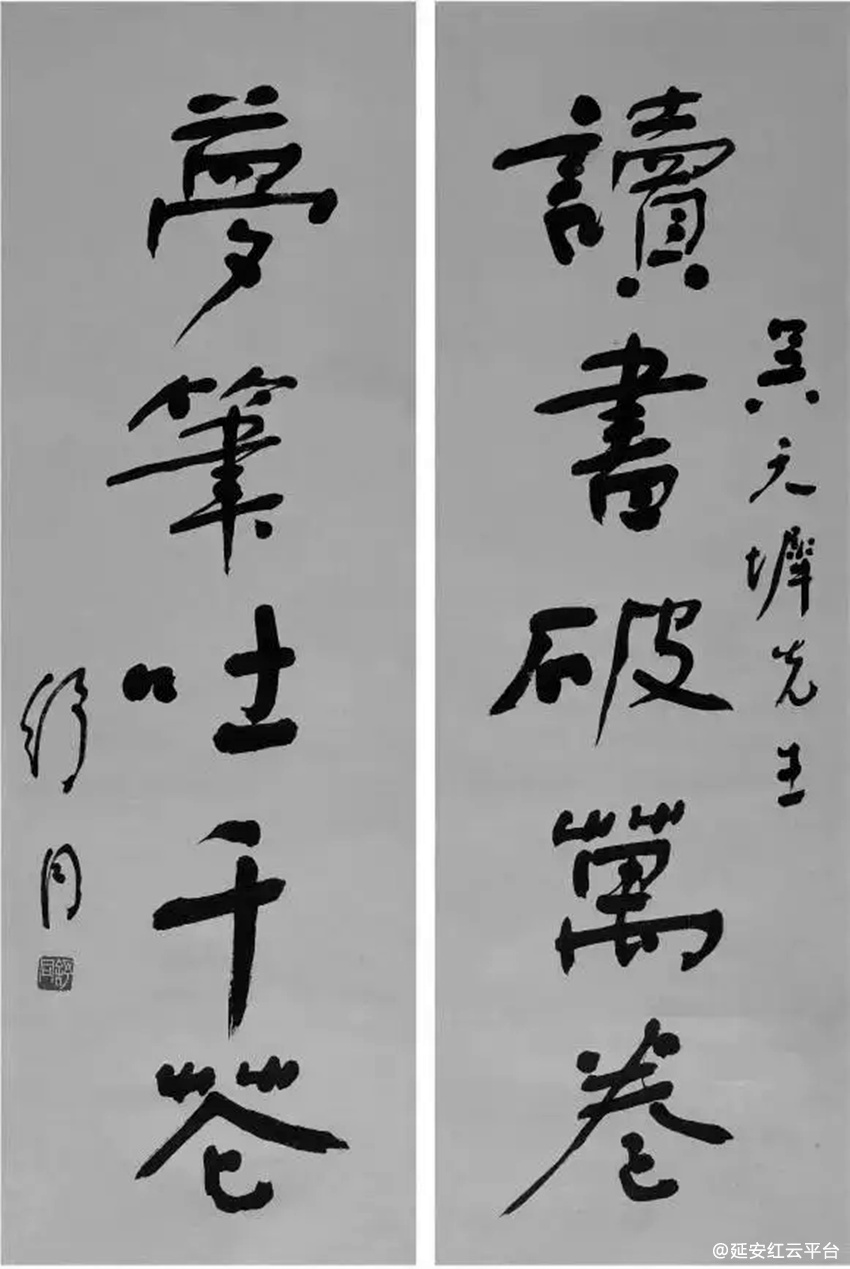 吴天墀先生
讀書破萬卷
夢筆吐千花
舒同
舒同
@延安红云平台